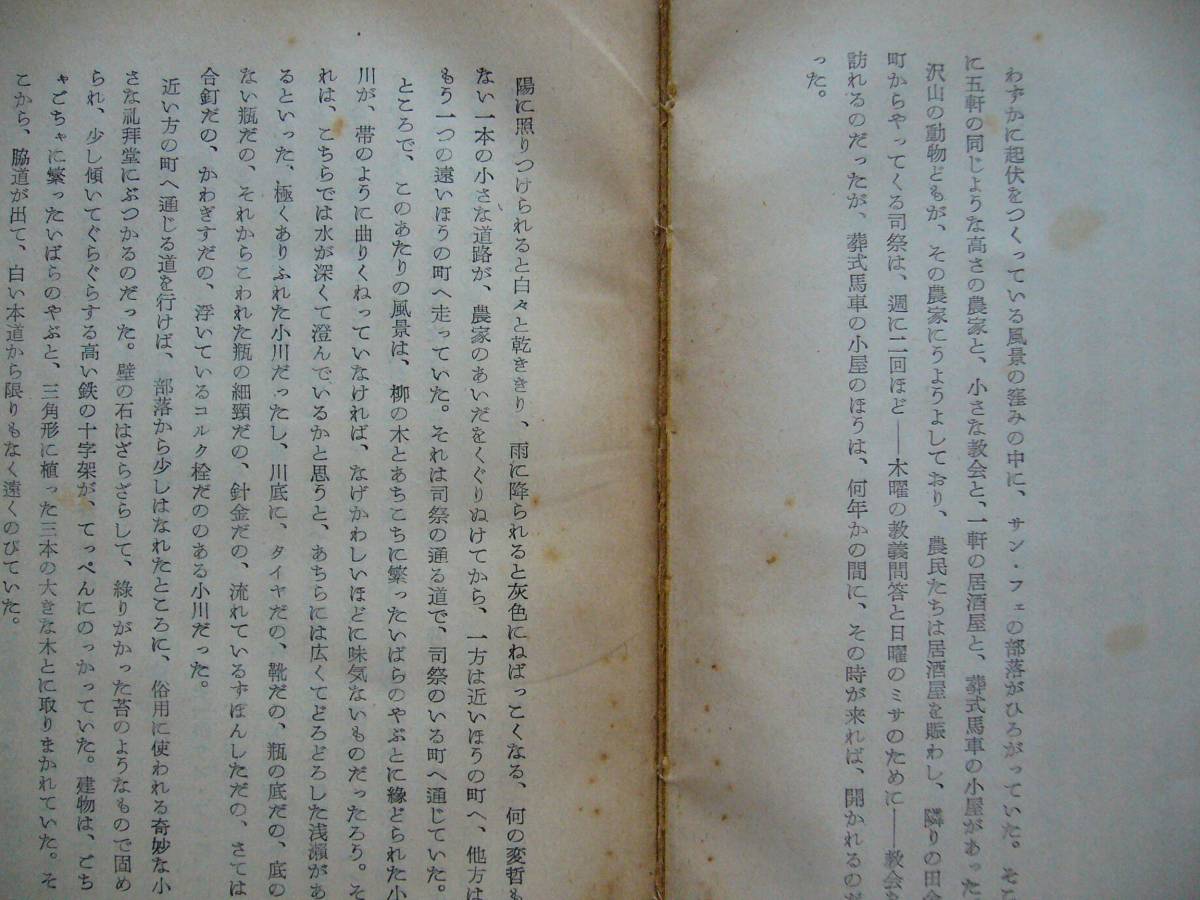 わずかに起伏をつくっている風景の窪みの中に、サン・フェの部落がひろがっていた。そこ
に五軒の同じような高さの農家と、小さな教会と、一軒の居酒屋と、葬式馬車の小屋があった
沢山の動物どもが、その農家にうようよしており、農民たちは居酒屋を賑わし、隣りの田舎
町からやってくる司祭は、週に二回ほど――木曜の教義問答と日曜のミサのために――教会を
訪れるのだったが、葬式馬車の小屋のほうは、何年かの間に、その時が来れば、開かれるのが
った。
陽に照りつけられると白々と乾ききり、雨に降られると灰色にねばっこくなる、何の変哲も
ない一本の小さな道路が、農家のあいだをくぐりぬけてから、一方は近いほうの町へ、他方は
もう一つの遠いほうの町へ走っていた。それは司祭の通る道で、司祭のいる町へ通じていた。
ところで、このあたりの風景は、柳の木とあちこちに繁ったいばらのやぶとに縁どられた小
川が、帯のように曲りくねっていなければ、なげかわしいほどに味気ないものだったろう。そ
れは、こちらでは水が深くて澄んでいるかと思うと、あちらには広くてどろどろした浅瀬があ
るといった、極くありふれた小川だったし、川底に、タイヤだの、靴だの、瓶の底だの、底の
ない瓶だの、それからこわれた瓶の細頸だの、針金だの、流れているずぼんしただの、さては
合釘だの、かわぎすだの、浮いているコルク栓だののある小川だった。
近い方の町へ通じる道を行けば、部落から少しはなれたところに、俗用に使われる奇妙な小
さな礼拝堂にぶつかるのだった。壁の石はざらざらして、緑りがかった苔のようなもので固め
られ、少し傾いてぐらぐらする高い鉄の十字架が、てっぺんにのっかっていた。建物は、ごち
ゃごちゃに繁ったいばらのやぶと、三角形に植った三本の大きな木とに取りまかれていた。そ
こから、脇道が出て、白い本道から限りもなく遠くのびていた。